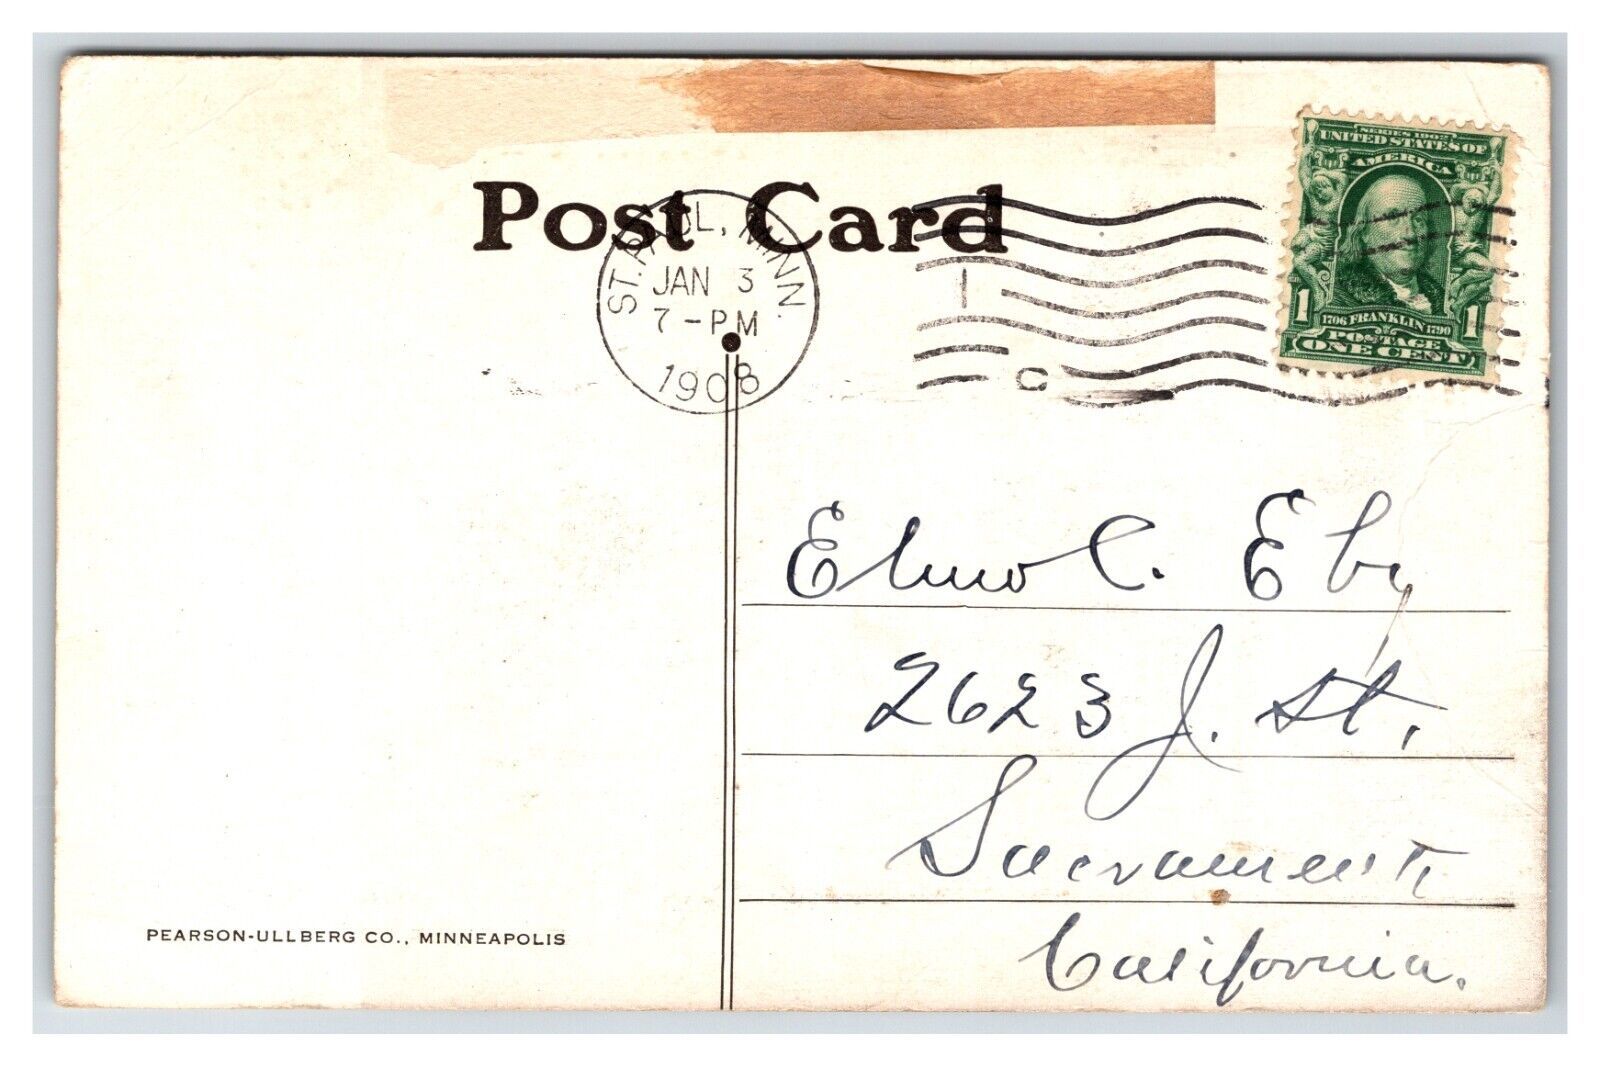 Post Card
ST. PAUL, MINN.
JAN 3
7-PM
1908
1
C
SERIES 1902
UNITED STATES OF
AMERICA
1 1
1706 FRANKLIN 1790
POSTAGE
ONE CENT
Elmo C. Eby
2623 J. St.
Sacramento
California.
PEARSON-ULLBERG CO., MINNEAPOLIS